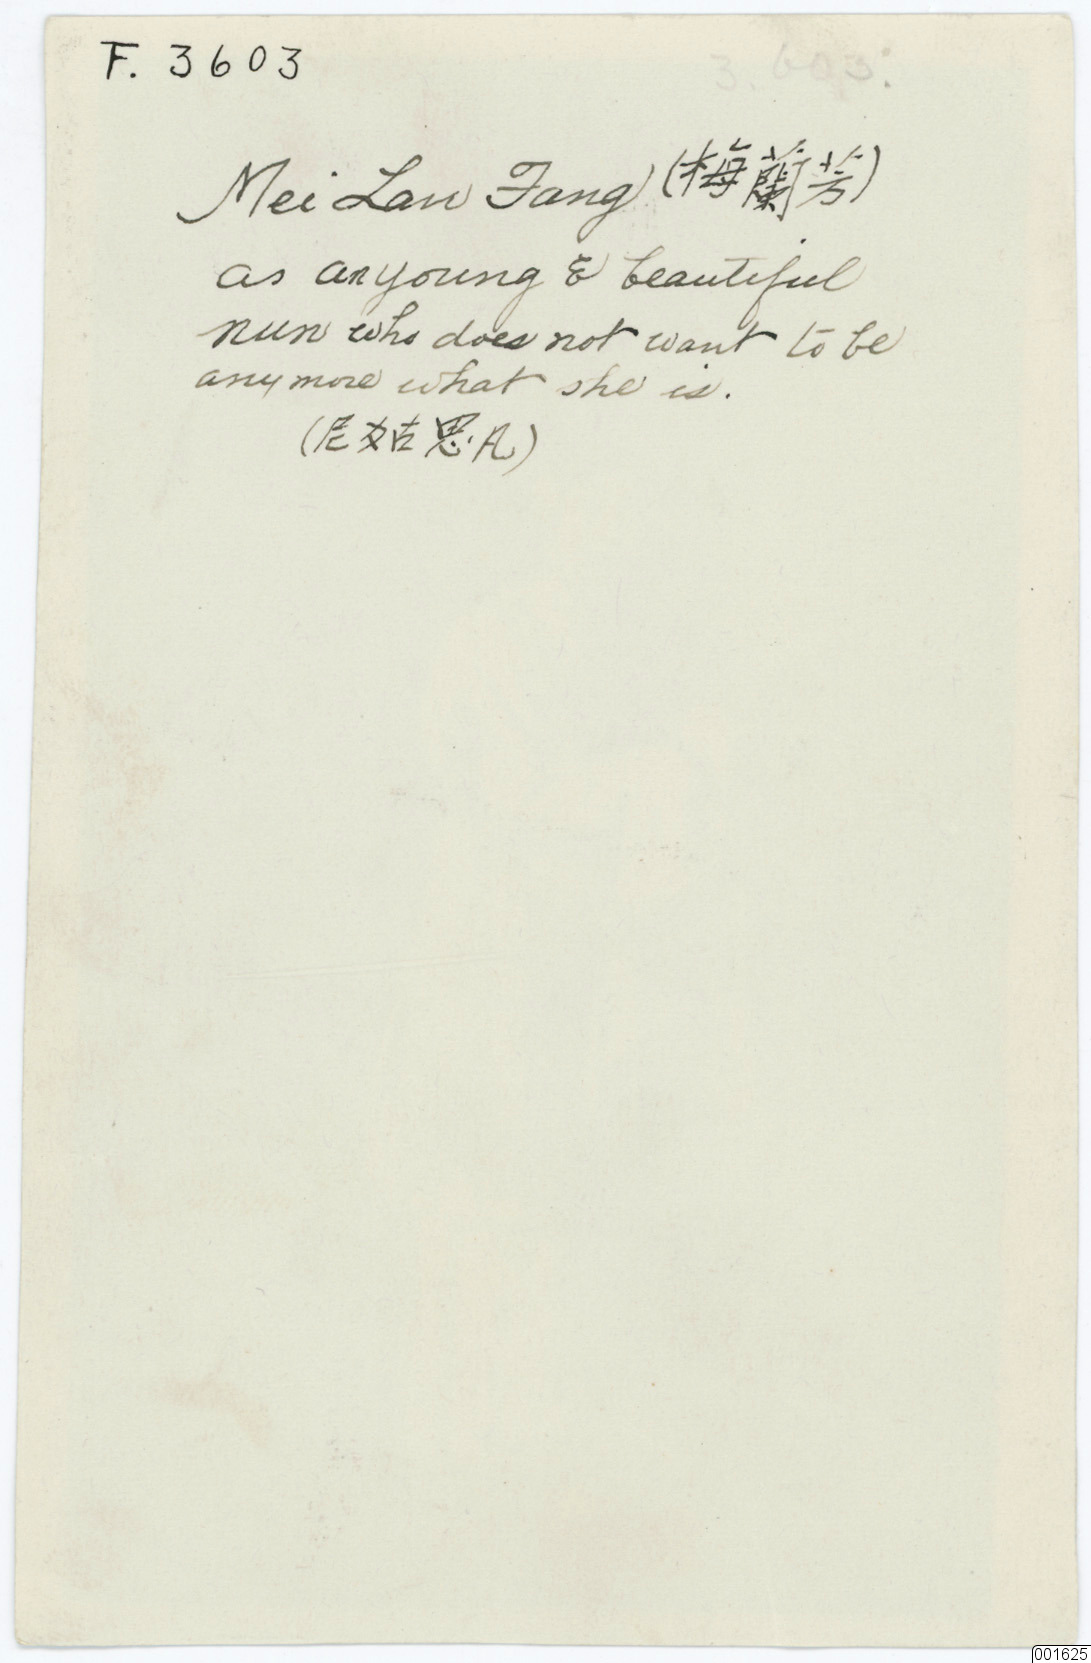 F. 3603
3.603.
Mei Lan Fang (梅蘭芳)
as an young & beautiful
nun who does not want to be
anymore what she is.
(尼姑思凡)
001625